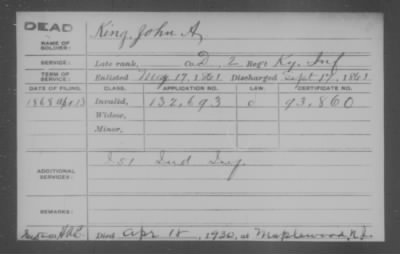 DEAD
NAME OF SOLDIER: King, John A,
SERVICE: Late rank, Co D, 2 Regt Ky. Inf
TERM OF SERVICE: Enlisted May 17, 1861. Discharged Sept 17, 1861
DATE OF FILING. CLASS. APPLICATION NO. LAW. CERTIFICATE NO.
1868 Apr 13 Invalid, 132,693 93,860
Widow,
Minor,
ADDITIONAL SERVICES: I 51 Ind Inf.
REMARKS:
Died Apr 18, 1930, at Maplewood, N.J.